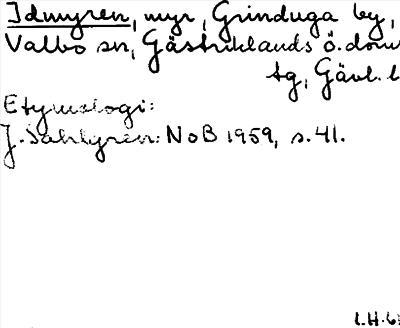 Idmyren, myr, Grinduga by,
Valbo sn, Gästriklands ö. dom
tg, Gävl. l
Etymologi:
J. Sahlgren: NoB 1959, s. 41.
L.H.